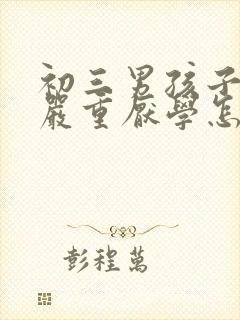 初三男孩子
嚴重厭學怎
彭程萬